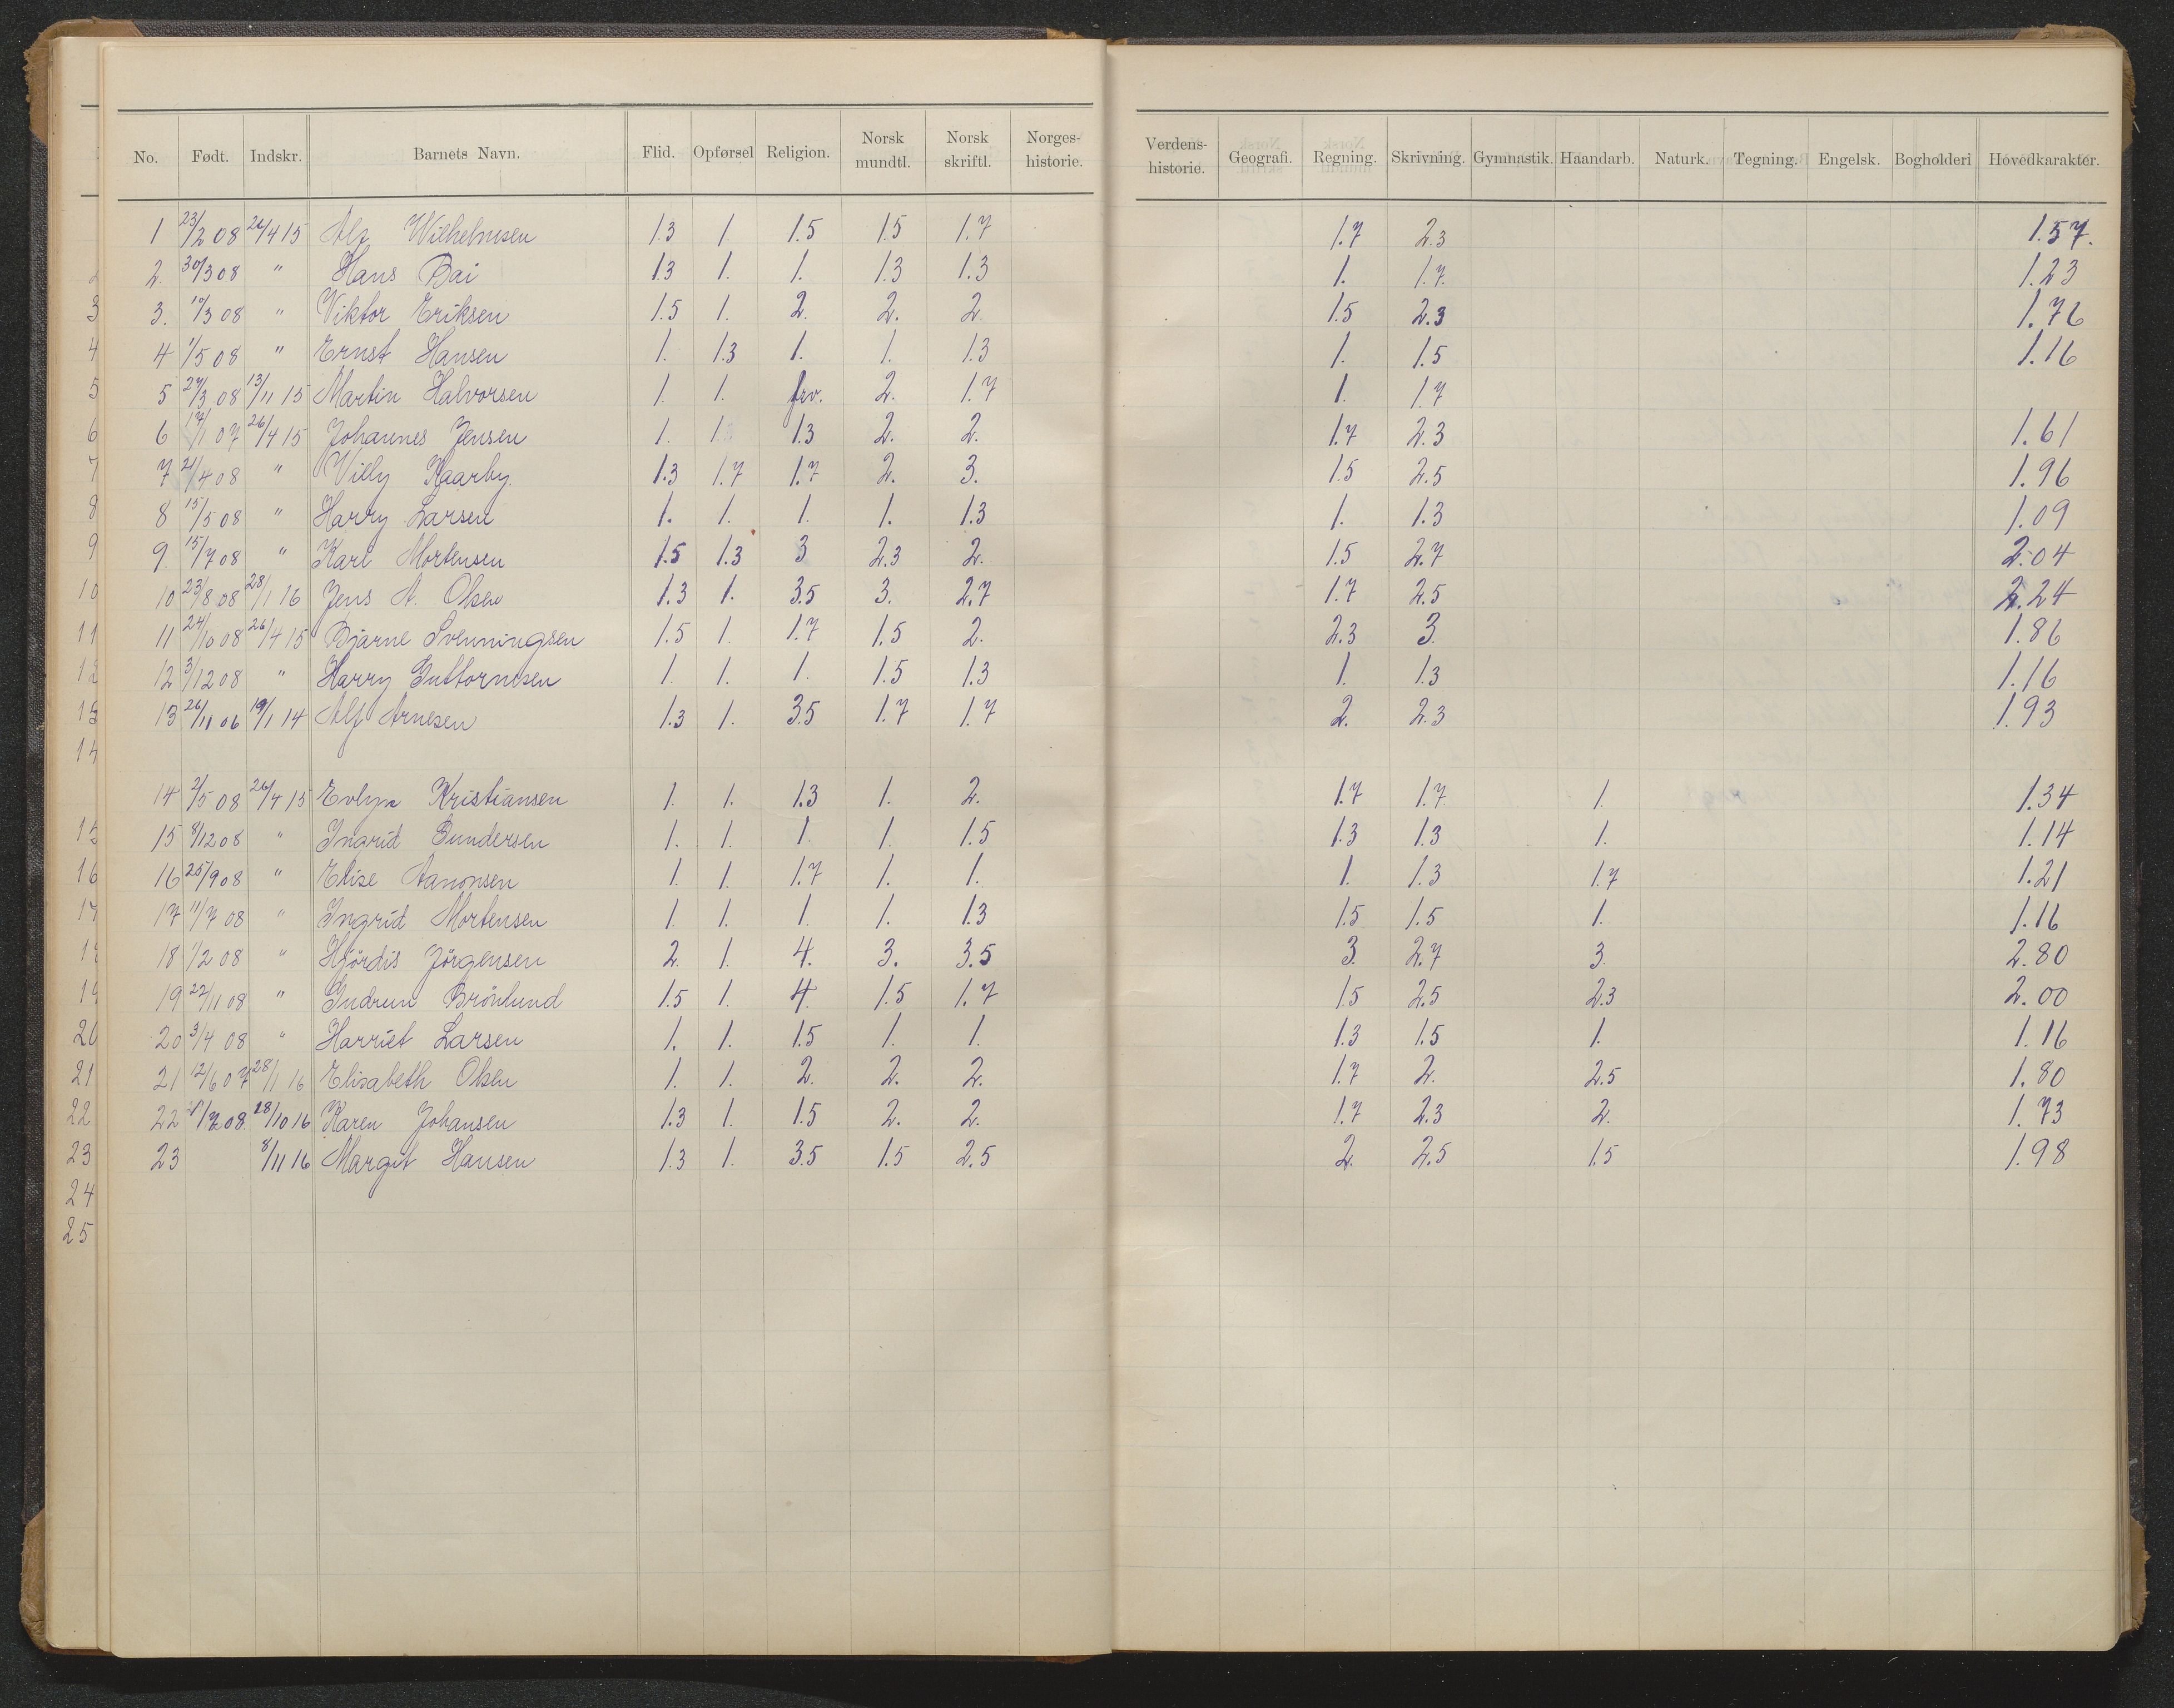 No. Født. Indskr. Barnets Navn. Flid. Opførsel Religion. Norsk mundtl. Norsk skriftl. Norges-historie. Verdens-historie. Geografi. Regning. Skrivning. Gymnastik. Haandarb. Naturk. Tegning. Engelsk. Bogholderi Hovedkarakter.
1 23/2 08 26/4 15 Alf Wilhelmsen 1.3 1. 1.5 1.5 1.7 1.7 2.3 1.57.
2. 30/3 08 " Hans Bai 1.3 1. 1. 1.3 1.3 1. 1.7. 1.23
3. 10/3 08 " Viktor Eriksen 1.5 1. 2. 2. 2. 1.5 2.3 1.76
4 1/5 08 " Ernst Hansen 1. 1.3 1. 1. 1.3 1. 1.5 1.16
5 13/11 15 Martin Halvorsen 1. 1. frv. 2. 1.7 1. 1.7
6 17/1 07 26/4 15 Johannes Jensen 1. 1.3 2. 2. 1.7 2.3 1.61
7 21/4 08 " Villy Kaarby 1.3 1.7 1.7 2. 3. 1.5 2.5 1.96
8 15/5 08 " Harry Larsen 1. 1. 1. 1. 1.3 1. 1.3 1.09
9. 15/7 08 " Karl Mortensen 1.5 1.3 3 2.3 2. 1.5 2.7 2.04
10 23/8 08 28/1 16 Jens A. Olsen 1.3 1. 3.5 3. 2.7 1.7 2.5 2.24
11 24/10 08 26/4 15 Bjarne Svenningsen 1.5 1. 1.7 1.5 2. 2.3 3. 1.86
12 3/12 08 " Harry Guttormsen 1. 1. 1. 1.5 1.3 1. 1.3 1.16
13 26/11 06 19/1 14 Alf Arnesen 1.3 1. 3.5 1.7 1.7 2. 2.3 1.93
14 2/5 08 26/4 15 Evlyn Kristiansen 1. 1. 1.3 1. 2. 1.7 1.7 1. 1.34
15 8/12 08 " Ingrid Gundersen 1. 1. 1. 1. 1.5 1.3 1.3 1. 1.14
16 25/9 08 " Elise Aanonsen 1. 1. 1.7 1. 1. 1. 1.3 1.7 1.21
17 11/7 08 " Ingrid Mortensen 1. 1. 1. 1. 1.3 1.5 1.5 1. 1.16
18 1/2 08 " Hjördis Jörgensen 2. 1. 4. 3. 3.5 3. 2.7 3. 2.80
19 22/11 08 " Gudrun Brönlund 1.5 1. 4. 1.5 1.7 1.5 2.5 2.3 2.00
20 3/4 08 " Harriet Larsen 1. 1. 1.5 1. 1. 1.3 1.5 1. 1.16
21 12/6 07 28/1 16 Elisabeth Olsen 1. 1. 2. 2. 2. 1.7 2. 2.5 1.80
22 08 18/10 16 Karen Johansen 1.3 1. 1.5 2. 2. 1.7 2.3 2. 1.73
23 8/11 16 Margit Hansen 1.3 1. 3.5 1.5 2.5 2. 2.5 1.5 1.98
3
4
5
6
7
8
9
10
11
12
13
14
15
16
17
18
19
20
21
22
23
24
25